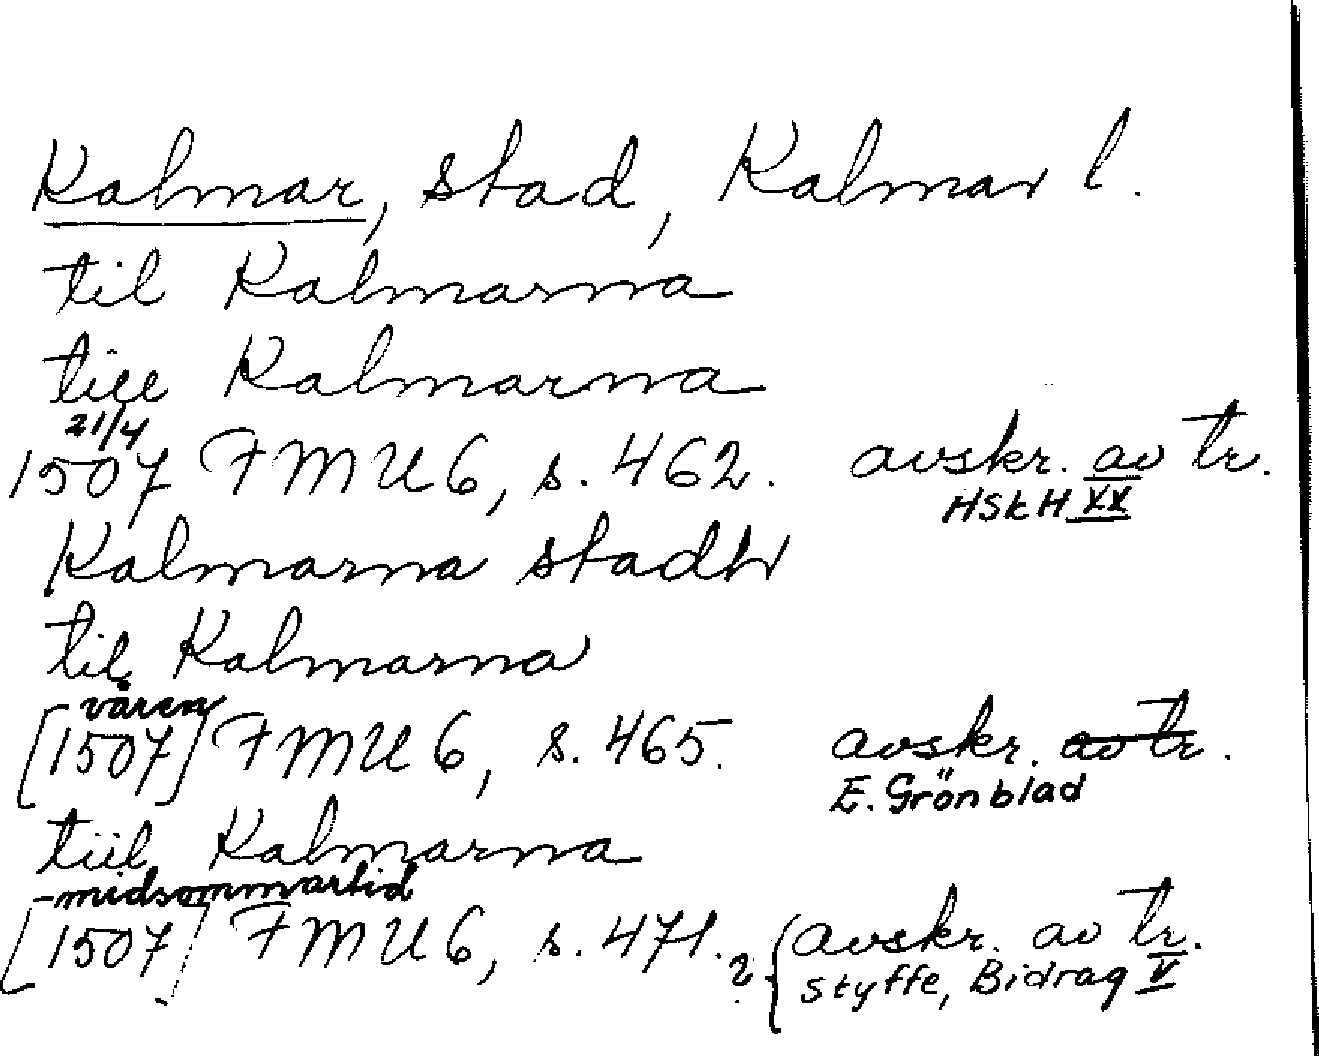 Kalmar, stad, Kalmar l.
til Kalmarna
till Kalmarna
21/4
1507 FMU 6, s. 462. avskr. av tr.
HSkH XX
Kalmarna stadh
til Kalmarna
våren
[1507] FMU 6, s. 465. avskr. av tr.
E. Grönblad
tiil Kalmarna
-midsommartid
[1507] FMU 6, s. 471. ? { avskr. av tr.
Styffe, Bidrag V